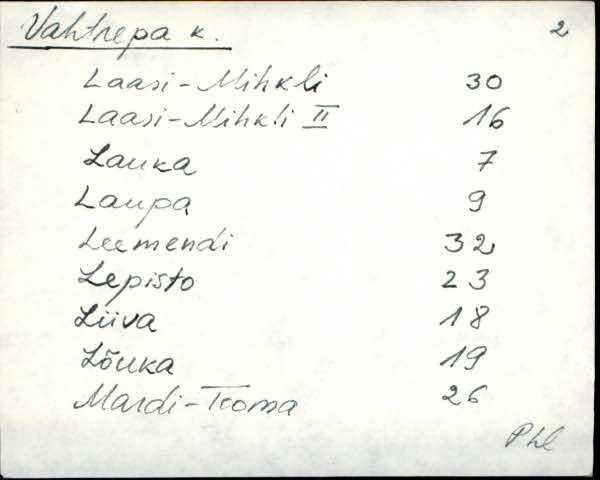 Vahtrepa k. 2
Laasi-Mihkli 30
Laasi-Mihkli II 16
Lauka 7
Laupa 9
Leemendi 32
Lepisto 23
Liiva 18
Lõuka 19
Mardi-Tooma 26
Phl